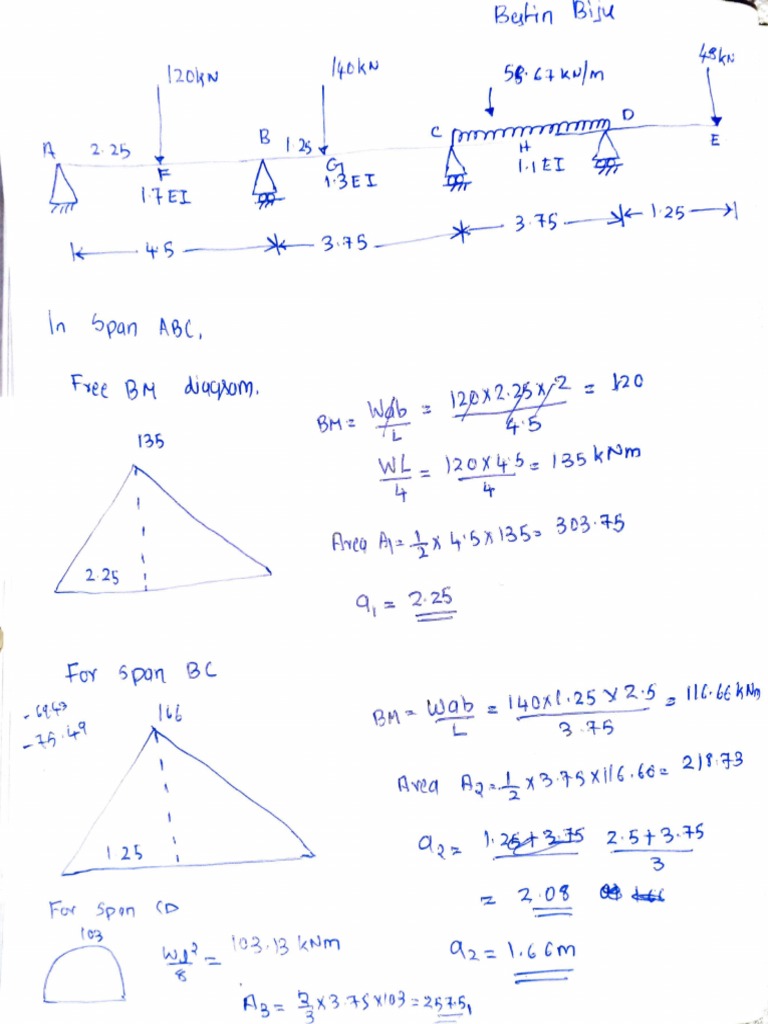 Bestin Biju
120kN
140kN
58.67 kN/m
48kN
A 2.25 F B 1.25 G C H D E
1.7EI 1.3EI 1.1EI
4.5 3.75 3.75 1.25
In Span ABC,
Free BM diagram.
BM = Wab/L = 120×2.25×/2 / 4.5 = 120
135
WL/4 = 120×4.5/4 = 135 kNm
Area A1 = 1/2 × 4.5×135 = 303.75
2.25
a1 = 2.25
For span BC
- 69.43
- 75.49
166
BM = Wab/L = 140×1.25×2.5 / 3.75 = 116.66 kNm
Area A2 = 1/2 × 3.75×116.66 = 218.73
1.25
a2 = 1.25+3.75 2.5+3.75 / 3
= 2.08
For Span CD
103
Wl²/8 = 103.13 kNm
a2 = 1.66m
A3 = 2/3 × 3.75×103 = 257.5,